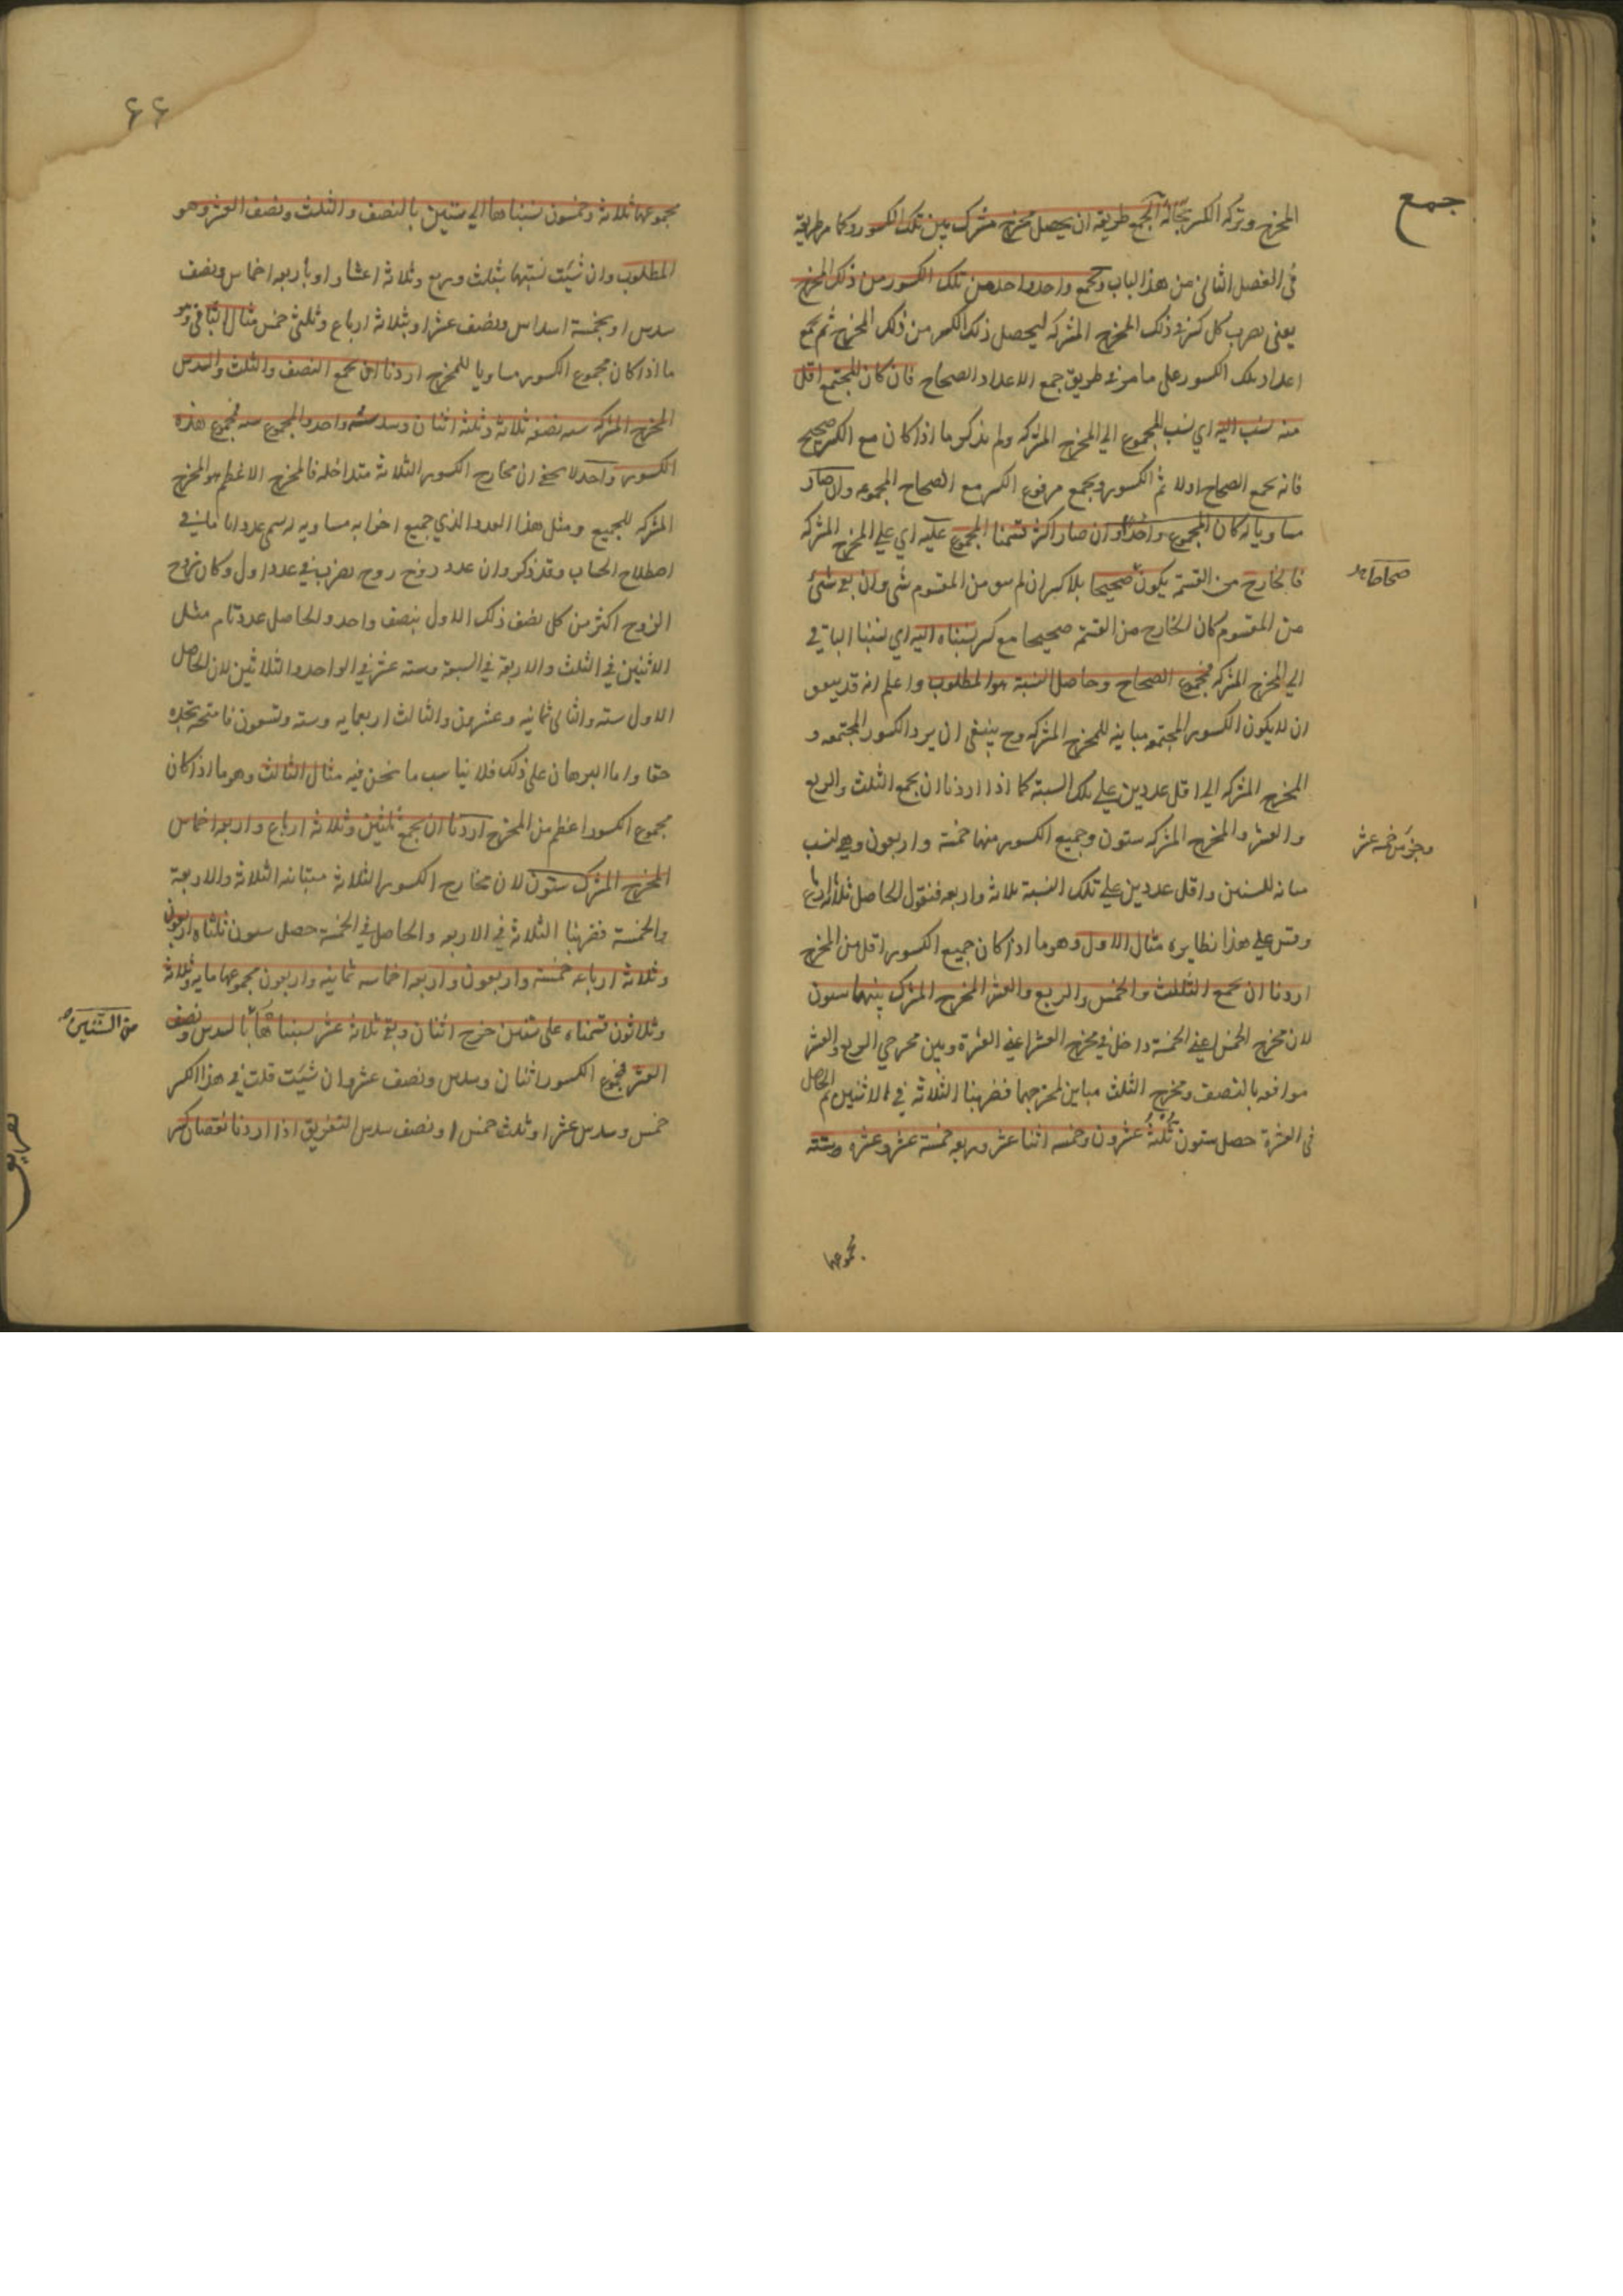 جمع
المخرج وتركه الكسر بحاله الجمع طريقه ان يحصل مخرج مشترك بين تلك الكسور وكما مر طريقه
في الفصل الثاني من هذا الباب ويجمع واحد واحد من تلك الكسور من ذلك المخرج
يعني يضرب كل كسر في ذلك المخرج المشترك ليحصل ذلك الكسر من ذلك المخرج ثم يجمع
اعداد تلك الكسور على ما مر في طريق جمع الاعداد الصحاح فان كان المجتمع اقل
منه نسب اليه اي نسب المجموع الي المخرج المشترك ولم يذكر ما اذا كان مع الكسر صحيح
فانه يجمع الصحاح اولا ثم الكسور ويجمع مرفوع الكسر مع الصحاح المجموعه وان صار
مساويا له كان المجموع واحدا وان صار اكثر قسمنا المجموع عليه اي علي المخرج المشترك
فالخارج من القسمة يكون صحيحا بلا كسر ان لم يبق من المقسوم شي وان بقي شئ
صحاحا
من المقسوم كان الخارج من القسمة صحيحا مع كسر نسبناه اليه اي نسبنا الباقي
الي المخرج المشترك فمجموع الصحاح وحاصل النسبة هو المطلوب واعلم انه قد يتفق
ان لا يكون الكسور المجتمعه مباينه للمخرج المشترك وح ينبغي ان يرد الكسور المجتمعه و
المخرج المشترك الي اقل عددين علي تلك النسبة كما اذا اردنا ان يجمع الثلث والربع
والعشر والمخرج المشترك ستون وجميع الكسور منها خمسة واربعون وهي ليست
وجزء من خمسه عشر
مباينه للستين واقل عددين علي تلك النسبة ثلاثه واربعه فنقول الحاصل ثلاثه ارباع
وقس علي هذا نظايره مثال الاول وهو ما اذا كان جميع الكسور اقل من المخرج
اردنا ان نجمع الثلث والخمس والربع والعشر المخرج المشترك بينهما ستون
لان مخرج الخمس اعني الخمسة داخل في مخرج العشر اعني العشرة وبين مخرجي الربع والعشر
موافقه بالنصف ومخرج الثلث مباين لمخرجهما فضربنا الثلاثه في الاثنين ثم الحاصل
في العشرة حصل ستون ثلثه عشرون وخمسه اثنا عشر وربعه خمسة عشر وعشره ستة
مجموعها
٦٦
مجموعها ثلاثة وخمسون نسبناها الي ستين بالنصف والثلث ونصف العشر وهو
المطلوب وان شيت نسبتها بثلث وربع وثلاثه اعشار او باربعه اخماس ونصف
سدس او بخمسة اسداس ونصف عشر او بثلاثه ارباع وثلثي خمس مثال الثاني وهو
ما اذا كان مجموع الكسور مساويا للمخرج اردنا ان نجمع النصف والثلث والسدس
المخرج المشترك سته نصفه ثلاثه وثلثه اثنان وسدسه واحد والمجموع سته فمجموع هذه
الكسور واحد لا يخفي ان مخارج الكسور الثلاثه متداخله فالمخرج الاعظم هو المخرج
المشترك للجميع ومثل هذا العدد الذي جميع اجزايه مساويه له يسمى عددا تاما في
اصطلاح الحساب وقد ذكروا ان عدد زوج زوج يضرب في عدد اول وكان زوج
الزوج اكثر من كل نصف ذلك الاول بنصف واحد والحاصل عدد تام مثل
الاثنين في الثلث والاربعة في السبعة وسته عشر في الواحد والثلاثين لان الحاصل
الاول سته والثاني ثمانيه وعشرون والثالث اربعمايه وسته وتسعون فامتحنه تجده
حقا واما البرهان على ذلك فلا يناسب ما نحن فيه مثال الثالث وهو ما اذا كان
مجموع الكسور اعظم من المخرج اردنا ان نجمع ثلثين وثلاثه ارباع واربعه اخماس
المخرج المشترك ستون لان مخارج الكسور الثلاثه متباينه الثلاثه والاربعة
والخمسة فضربنا الثلاثة في الاربعه والحاصل في الخمسة حصل ستون ثلثاه اربعون
وثلاثه ارباعه خمسة واربعون واربعه اخماسه ثمانيه واربعون مجموعها مايه وثلاثة
وثلاثون قسمناه على ستين خرج اثنان وبقي ثلاثة عشر نسبناها بالسدس ونصف
من الستين
العشر فمجموع الكسور اثنان وسدس ونصف عشر وان شيت قلت في هذا الكسر
خمس وسدس عشر او ثلث خمس او نصف سدس التفريق اذا اردنا نقصان كسر
تفريق